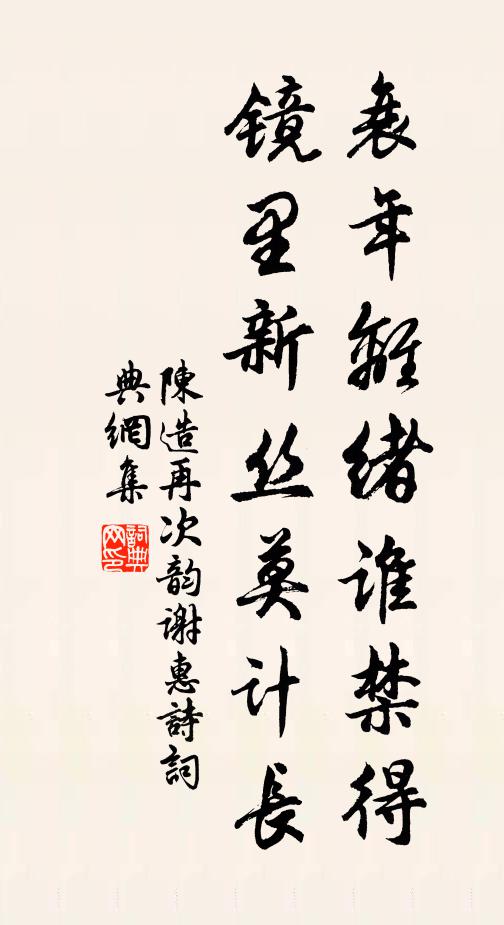 衰年離绪谁禁得
镜里新丝莫计長
陳造再次韵谢惠詩詞
典網集
詞典网印